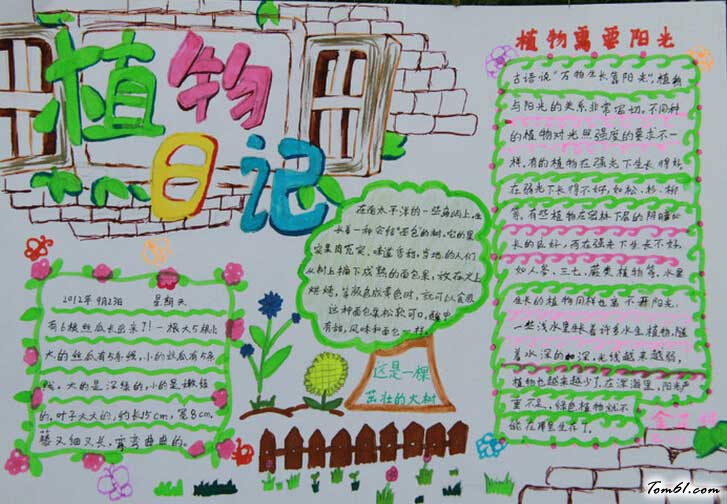 植物
日记
2012年9月23日 星期天
有6根丝瓜长出来了!一根大5根小
大的丝瓜有5条线,小的丝瓜有5条
线。大的是深绿的,小的是嫩绿
的,叶子大大的,约长15cm,宽8cm。
藤又细又长,弯弯曲曲的。
在南太平洋的一些岛屿上,生
长着一种会结"面包"的树。它的果
实果肉充实,味道香甜,当地的人们
从树上摘下成熟的面包果,放在火上
烘烤,等到烤成黄色时,就可以食用
这种面包果松软可口,酸中
有甜,风味和面包一样。
这是一棵
茁壮的大树
植物需要阳光
古语说"万物生长靠阳光",植物
与阳光的关系非常密切。不同种
的植物对光照强度的要求不一
样,有的植物在强光下生长得好
在弱光下长得不好,如松、杉、柳
等,有些植物在密林下层的阴暗处
长的良好,而在强光下生长不好。
如人参、三七、蕨类植物等,水里
生长的植物同样也离不开阳光。
一些浅水里长着许多水生植物,随
着水深的加深,光线越来越弱,
植物也越来越少了。在深海里,阳光严
重不足,绿色植物就不
能在那里生存了。
Tom61.com